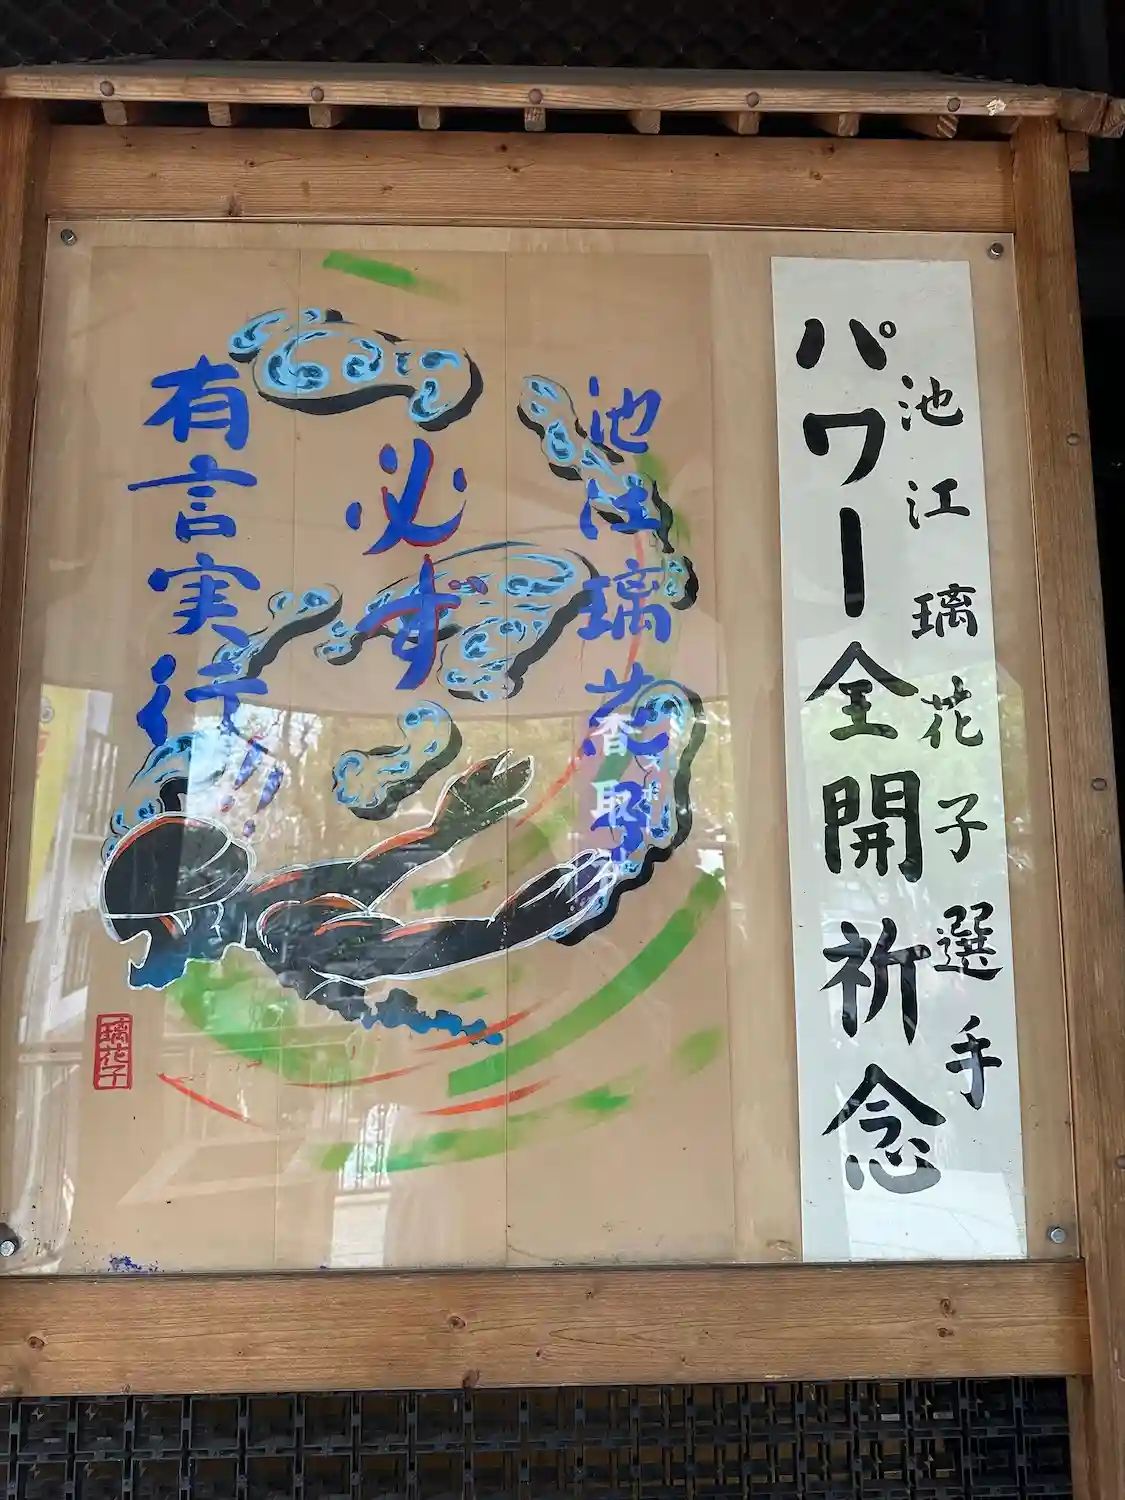 池江璃花子選手
パワー全開祈念
池江璃花子
必ず
有言実行
璃花子
香取